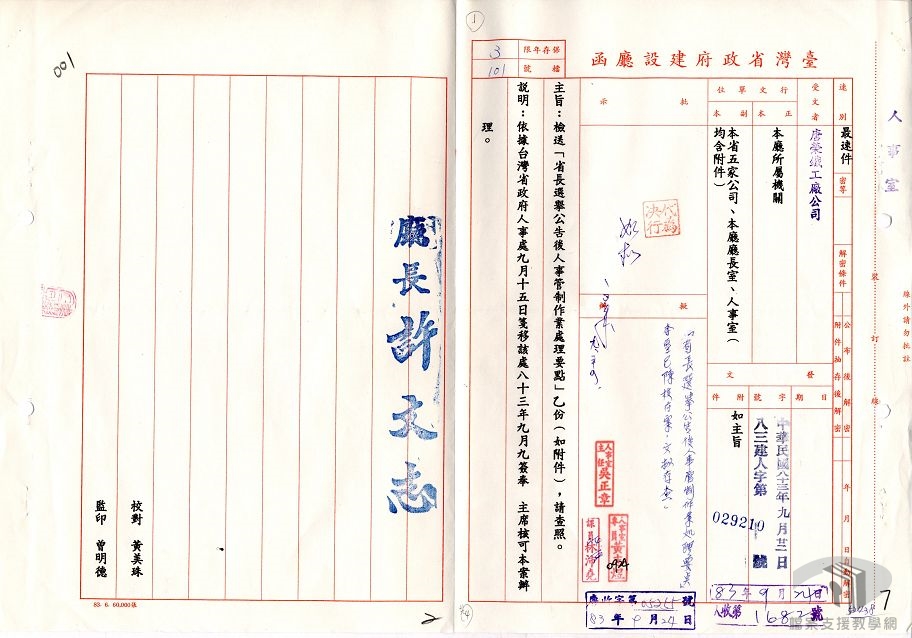 臺灣省政府建設廳函
保存年限
3
檔號
101
速別
最速件
密等
解密條件
公布後解密
附件抽存後解密
年 月 日自動解密
受文者
唐榮鐵工廠公司
行文單位
正本
本廳所屬機關
副本
本省五家公司、本廳廳長室、人事室(均含附件)
發文
日期
中華民國八十三年九月廿一日
字號
八三建人字第
029210
號
附件
如主旨
批示
代為決行
擬辦
人事室
裝訂線
線外請勿批註
主旨:檢送「省長選舉公告後人事管制作業處理要點」乙份(如附件),請查照。
說明:依據台灣省政府人事處九月十五日箋移該處八十三年九月九簽奉 主席核可本案辦
理。
「省長選舉公告後人事管制作業處理要點」
人事室主任吳正章
83年9月24日
83年9月24日
廳長許文志
校對 黃美珠
監印 曾明德
83. 6. 60,000張
001
1
2
7
檔案支援教學網